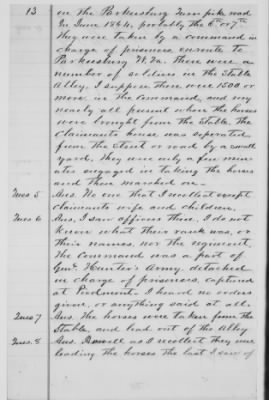 13 on the Parkersburg Turn pike road
In June 1864, probably the 6th or 7th
They were taken by a command in
charge of prisoners enroute to
Parkersburg W. Va. There were a
number of soldiers in the Stable
Alley, I suppose there were 1500 or
more in the Command, and very
nearly all present when the horses
were brought from the Stable. The
Claimants house was seperated
from the Street or road by a small
yard. They were only a few min-
utes engaged in taking the horses
and then marched on.
Ques 5 Ans. No one that I recollect except
claimants wife and children.
Ques 6 Ans. I saw officers there, I do not
Know what their rank was, or
their names, nor the regiment.
The command was a part of
Genl. Hunter's Army, detached
in charge of prisoners, captured
at Piedmont. I heard no orders
given, or anything said at all.
Ques 7 Ans. The horses were taken from the
Stable, and lead out of the Alley
Ques. 8 Ans. As well as I recollect they were
leading the horses the last I saw of